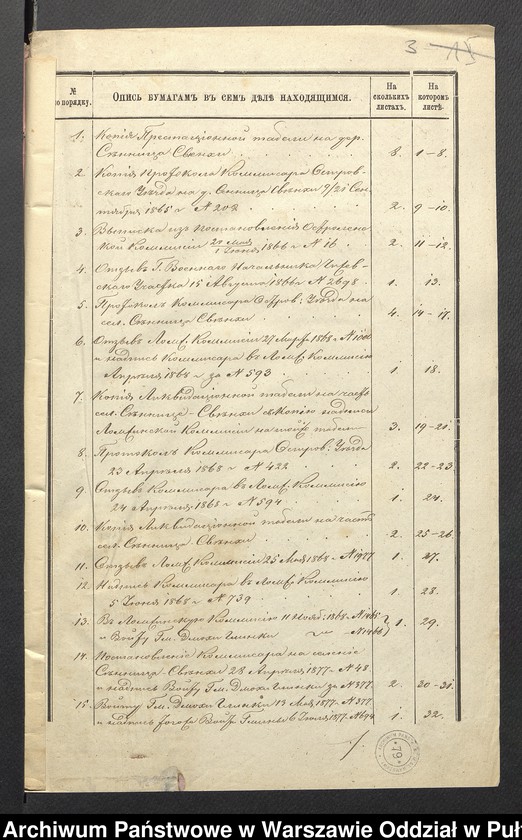 3 - 15
№ по порядку.
Опись бумагамъ въ семъ дѣлѣ находящимся.
На сколькихъ листахъ.
На которомъ листѣ.
1. Копія Престаціонной табели на дер.
Сѣнница Свенхи 8. 1-8.
2. Копія Протокола Коммисара Остров-
скаго Уѣзда на д. Сѣнница Свѣнхи 9/21 Сен-
тября 1865 г № 202 2. 9-10.
3. Выписка изъ постановленія Остроленс-
кой Коммисіи 20 Мая/1 Іюня 1866 г № 16 2. 11-12.
4. Отзывъ Г. Военнаго Начальника
скаго Участка 15 Августа 1866 г № 2698. 1. 13.
5. Протоколъ Коммисара Остров: Уѣзда на
сел. Сѣнница Свѣнхи 4. 14-17.
6. Отзывъ Ломж. Коммисіи 27 Марта 1868 г №
и надпись Коммисара въ Ломж. Коммисію
Апрѣля 1868 г за № 593 1. 18.
7. Копія Ликвидаціонной табели на часть
сел. Сѣнница-Свѣнхи съ копіею надписи
Ломжинской Коммисіи на той табели 3. 19-21
8. Протоколъ Коммисара Остров. Уѣзда
23 Апрѣля 1868 г № 422 2. 22-23
9. Отзывъ Коммисара въ Ломж. Коммисію
24 Апрѣля 1868 г № 594 1. 24.
10. Копія Ликвидаціонной табели на часть
сел. Сѣнница Свѣнхи 2. 25-26
11. Отзывъ Ломж. Коммисіи 25 Мая 1868 г № 1927 1. 27.
12. Надпись Коммисара въ Ломж. Коммисію
5 Іюня 1868 г № 739 1. 28.
13. Въ Ломжинскую Коммисію 11 Нояб. 1868 г № 1465
и Войту Гм. Дмохи Глинки № 1466 1. 29.
14. Постановленіе Коммисара на селеніе
Сѣнница-Свѣнхи 28 Апрѣля 1877 г № 48
и надпись Войту Гм. Дмохи Глинки за № 377. 2. 30-31.
15. Войту Гм. Дмохи Глинки 19 Мая 1877 г № 377
и надпись того Войта Гмины 6 Іюля 1877 г № 694 1. 32.
79
Archiwum Państwowe w Warszawie Oddział w Puł